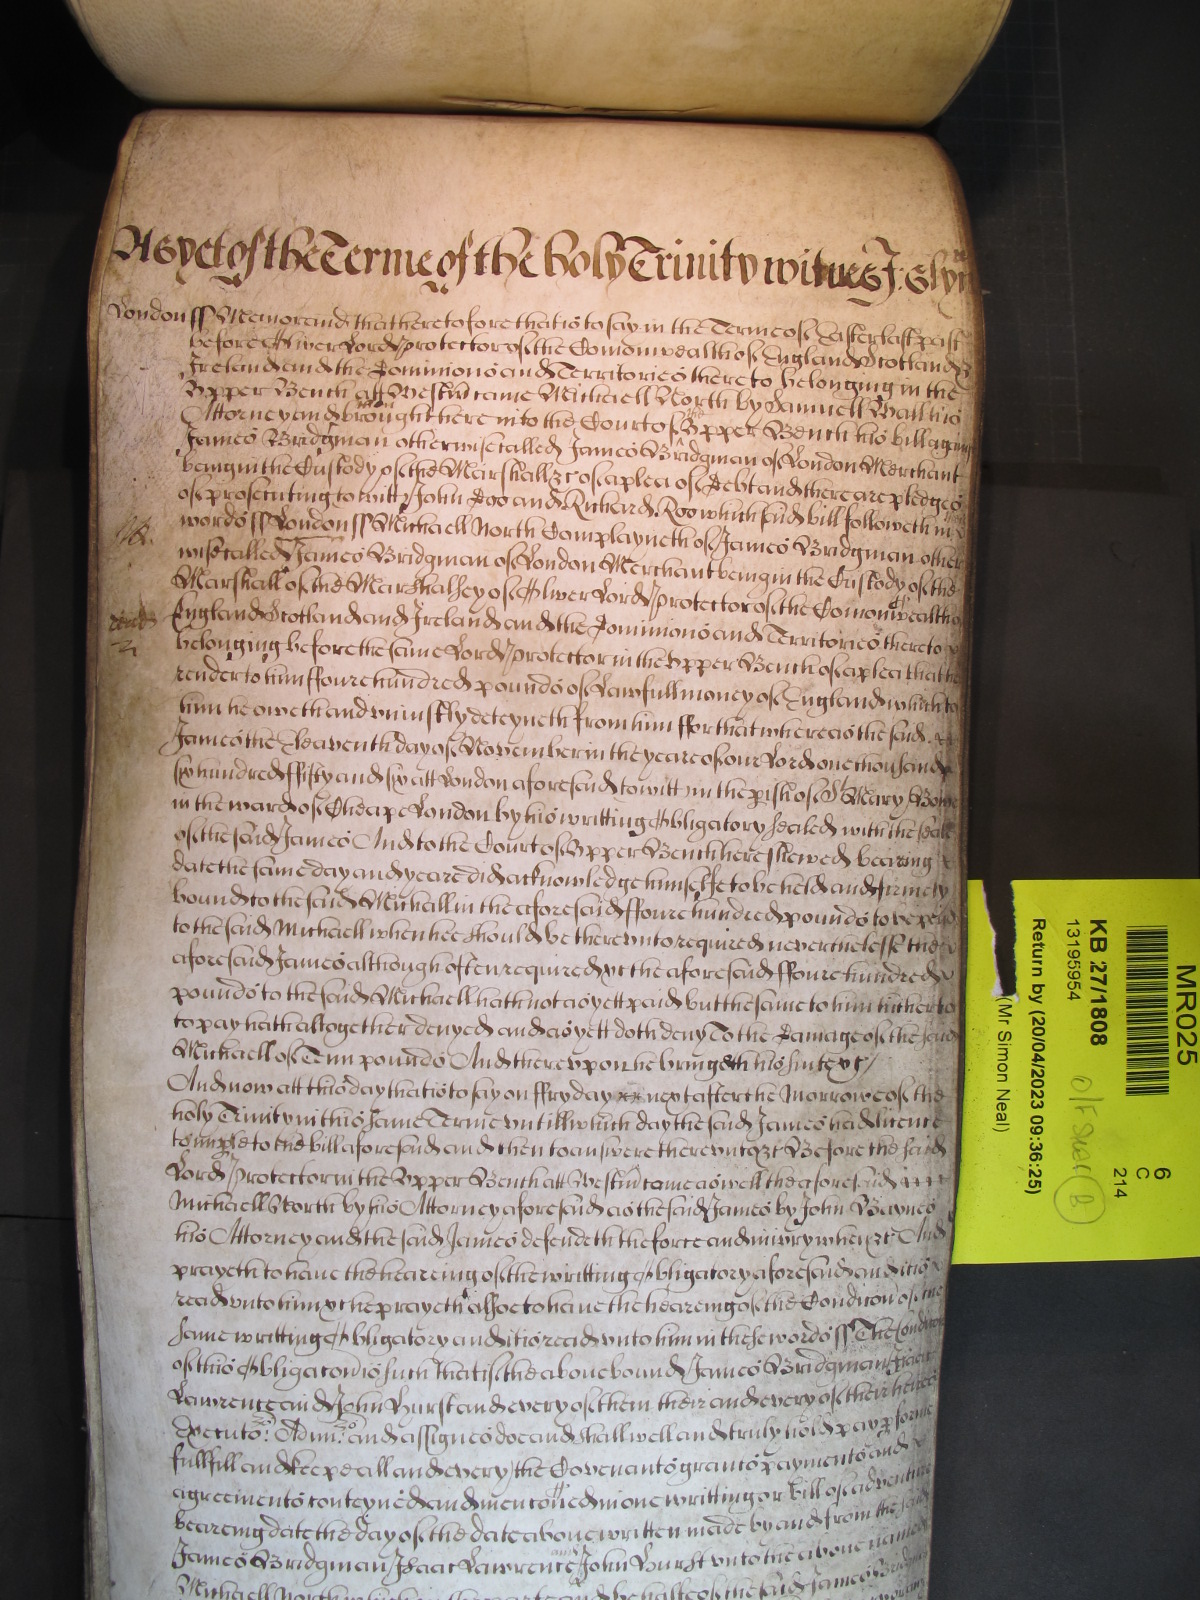 As yet of the Terme of the holy Trinity witnes J: Glyn
London ss Memorand that heretofore that is to say in the Terme of Easter last past
before Oliver Lord Protector of the Comonwealth of England Scotland &
Ireland and the Dominions and Territories thereto belonging in the
Upper Bench att Westm came Michaell North by Samuell Wall his
Attorney and brought here into the Court of Upper Bench his bill against
James Bridgman otherwise called James Bridgman of London Merchant
being in the Custody of the Marshall &c of a plea of Debt and there are pledges
of prosecuting to witt John Doo and Richard Roo which said bill followeth in
words ss London ss Michaell North Complayneth of James Bridgman other
wise called James Bridgman of London Merchant being in the Custody of the
Marshall of the Marshalsey of Oliver Lord Protector of the Comonwealth of
England Scotland and Ireland and the Dominions and Territories thereto
belonging before the same Lord Protector in the Upper Bench of a plea that he
render to him ffoure hundred pounds of Lawfull money of England which to
him he oweth and uniustly deteyneth from him ffor that whereas the said
James the Eleaventh day of November in the yeare of our Lord one thousand
six hundred ffifty and six att London aforesaid to witt in the pish of St Mary Bowe
in the ward of Cheape London by his writting Obligatory sealed with the seale
of the said James And to the Court of Upper Bench here shewed beareing
date the same day and yeare did acknowledge himselfe to be held and firmely
bound to the said Michaell in the aforesaid ffoure hundred pounds to be paid
to the said Michaell when hee should be thereunto required neverthelesse the
aforesaid James although often required yet the aforesaid ffoure hundred
pounds to the said Michaell hath not as yett paid but the same to him hitherto
to pay hath altogether denyed and as yett doth deny To the Damage of the said
Michaell of Tenn pounds And thereupon he bringeth his suite &c
And now att this day that is to say on ffryday next after the Morrowe of the
holy Trinity in this same Terme untill which day the said James had licence
to imple to the bill aforesaid and then to answere thereunto &c Before the said
Lord Protector in the Upper Bench att Westm came as well the aforesaid
Michaell North by his Attorney aforesaid as the said James by John Baynes
his Attorney and the said James defendeth the force and iniury when &c And
prayeth to have the heareing of the writting Obligatory aforesaid and it is
read unto him &c he prayeth alsoe to have the heareing of the Condicon of the
same writting Obligatory and it is read unto him in these words ss The Condicon
of this Obligacon is such that if the above bound James Bridgman Isaac
Lawrence and John Hurst and every of them their and every of their heires
Executors Admrs and assignes doe and shall well and truly hold pay pforme
fullfill and keepe all and every the Covenants grants payments and
agreements conteyned and menconed in one writting or bill of adventure
beareing date the day of the date above written made by and from the said
James Bridgman Isaac Lawrence and John Hurst unto the above named
Michaell North which on the parte and behalfe of the said James Bridgman
MR025
6
C
214
KB 27/1808
13195954
Return by (20/04/2023 09:36:25)
(Mr Simon Neal)